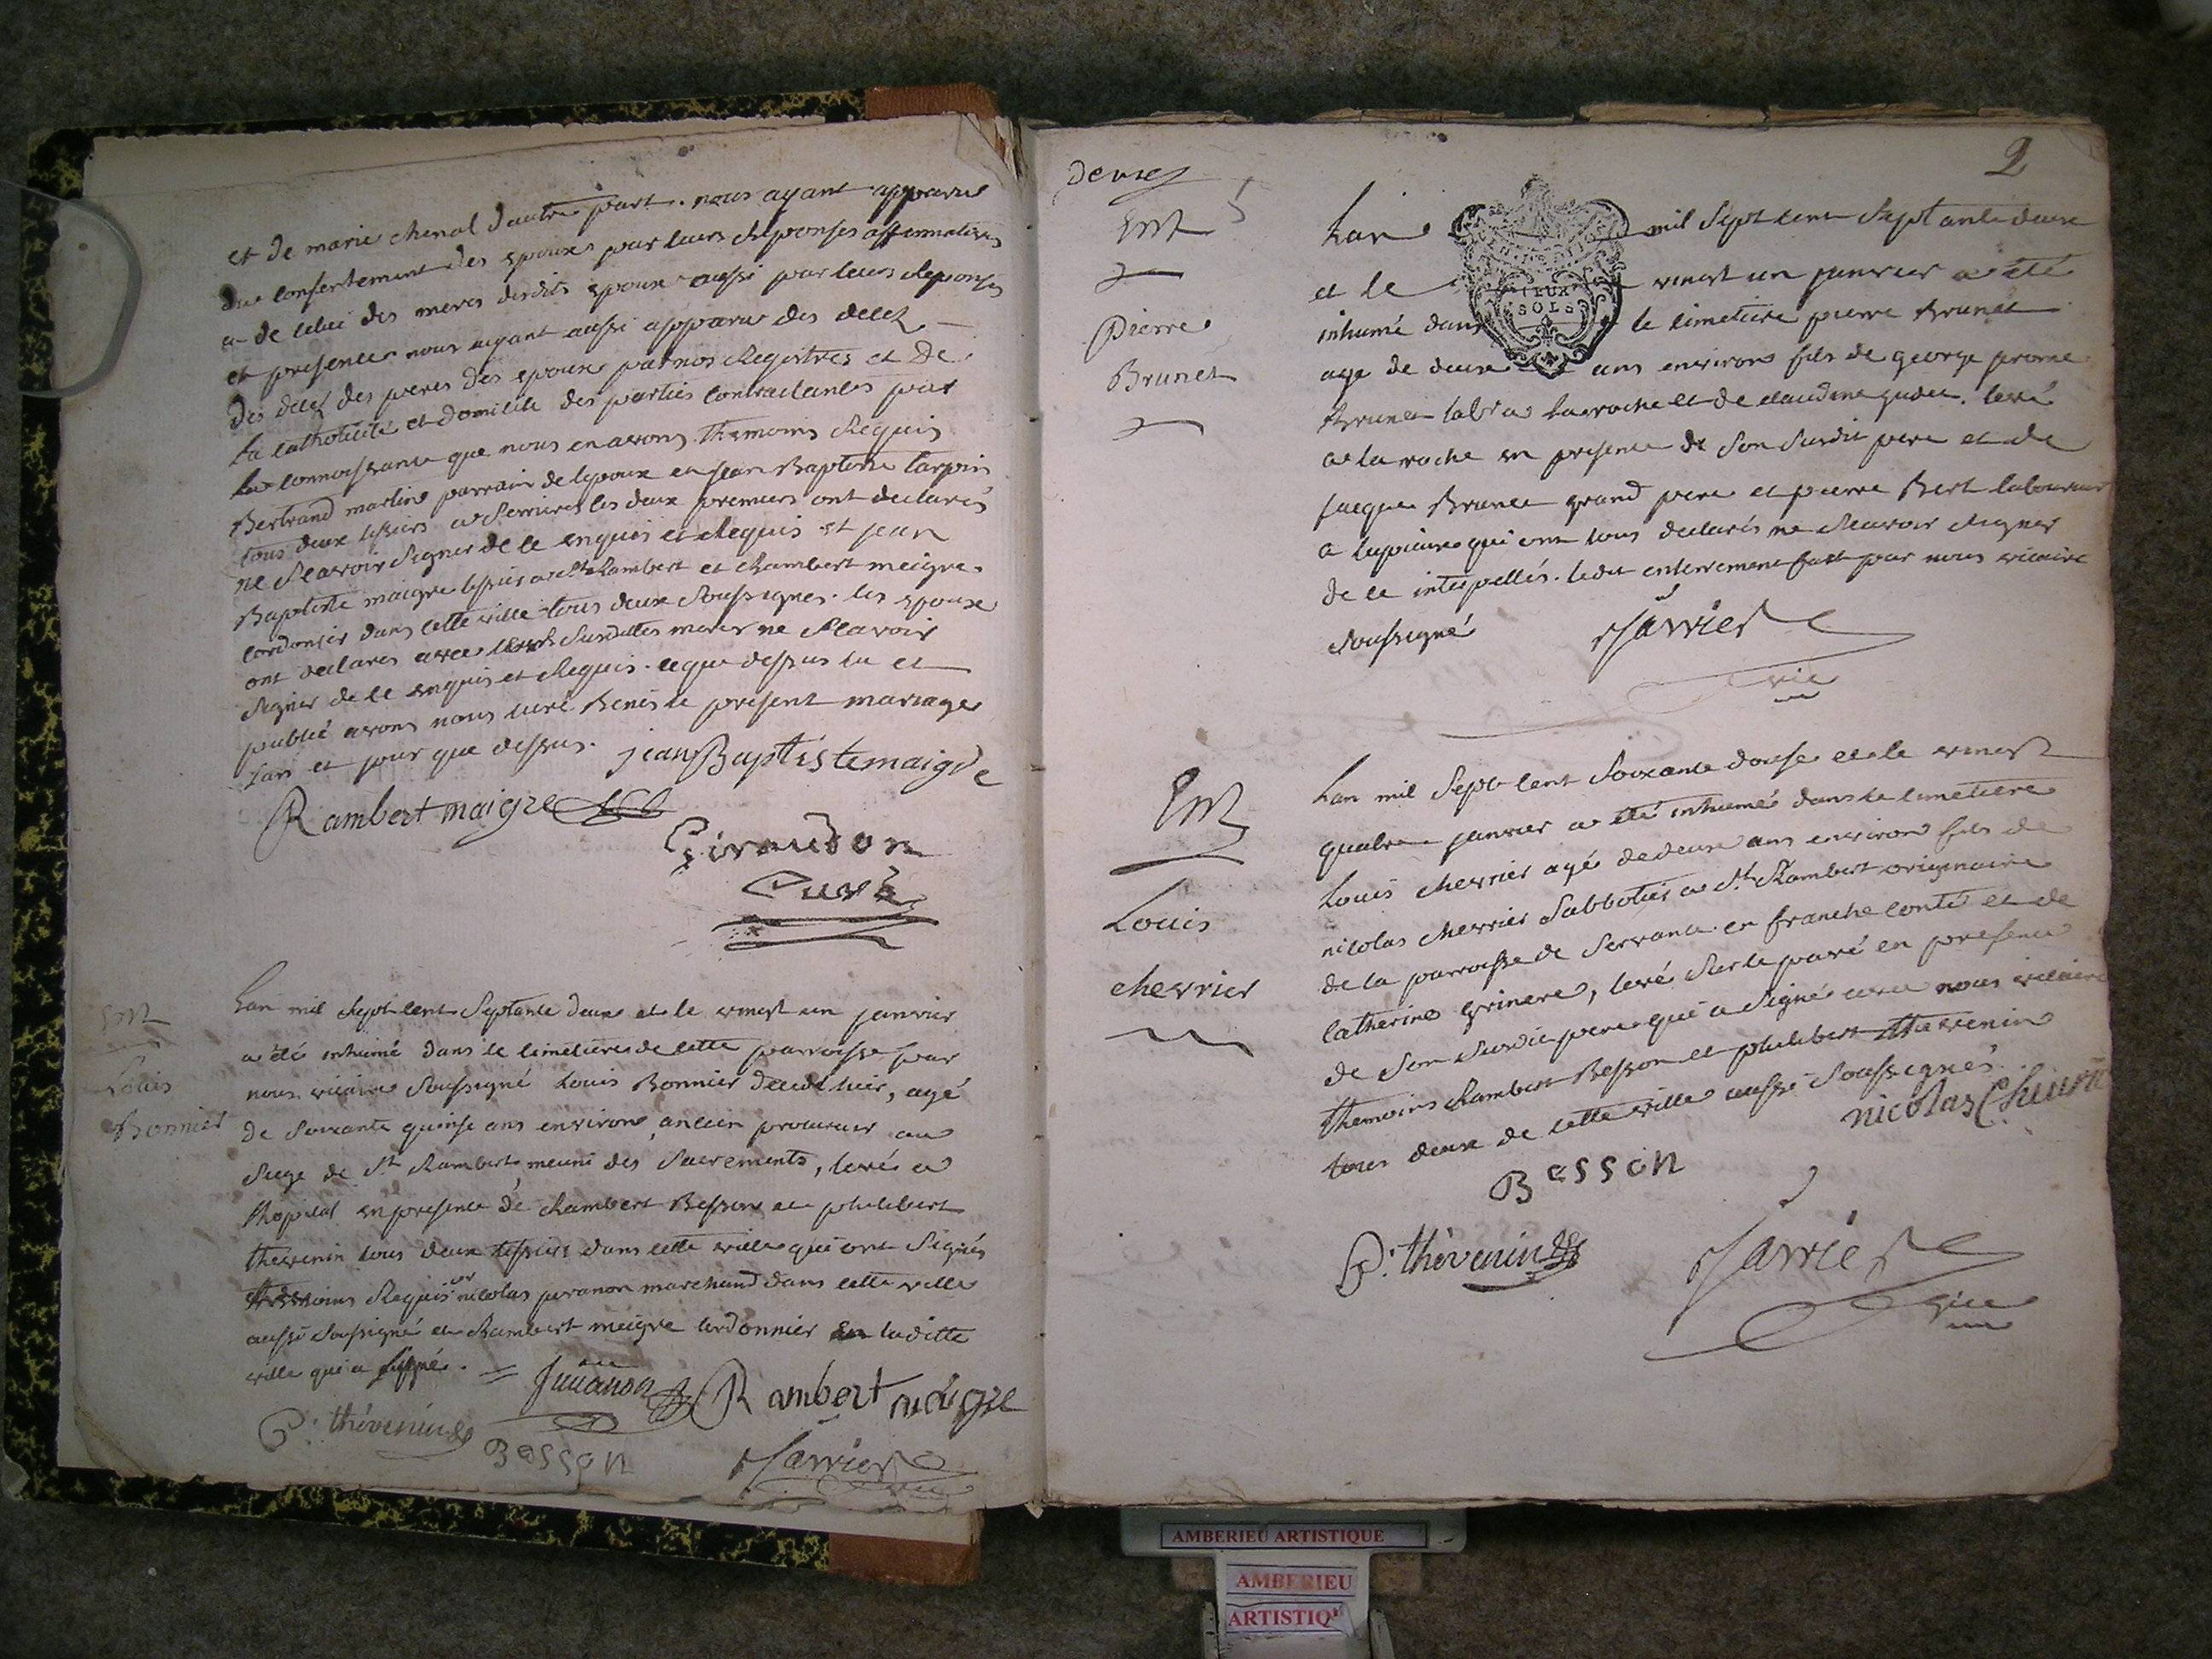 et de marie chenal dautre part. nous ayant apparu
du consentement des epoux par leurs reponses affirmatives
a de celui des meres desdits epoux aussi par leurs reponses
et presence nous ayant aussi apparu des decez
des decez des peres des epoux par nos Registres et de
la catholicité et domicile des parties contractantes par
la connoissance que nous en avons. themoins Requis
Bertrand martin parrain de lepoux et jean Baptiste Carpin
tous deux tissiers a Serrieres les deux premiers ont declarés
ne Scavoir Signer de ce enquis et Requis et jean
Baptiste maigre tissier a St Rambert et Rambert meigre
cordonier dans cette ville tous deux Soussignes. les epoux
ont declarés avec leurs Susdittes meres ne Scavoir
Signer de ce enquis et Requis. ce que dessus lu et
publié avons nous curé Benis le present mariage
lan et jour que dessus. jean Baptiste maigre
Rambert maigre
Giraudon
Curé
Ent
Louis
Bonnier
Lan mil Sept cent Septante deux et le vingt un janvier
a été inhumé dans le cimetiere de cette parroisse par
nous vicaire Soussigné Louis Bonnier decedé hier, agé
de Soixante quinse ans environ, ancien procureur au
Siege de St Rambert, meuni des Sacrements, levé a
lhopital en presence de Rambert Besson et philibert
thevenin tous deux tissiers dans cette ville qui ont Signés
themoins Requis et nicolas juvanon marchand dans cette ville
aussi Soussigné et Rambert meigre cordonnier en laditte
ville qui a Signé. = Juvanon Rambert maigre
P. thévenin Besson Jarrier
vic
deuxe
2
Ent
Pierre
Brunet
Lan mil Sept cent Septante deux
DEUX
SOLS
et le vingt un janvier a été
inhumé dans le cimetiere pierre Brunet
age de deux ans environ fils de george
Brunet labr a la roche et de claudine levé
a la roche en presence de Son Susdit pere et de
jacque Brunet grand pere et pierre Bert laboureur
a qui ont tous declarés ne Scavoir Signer
de ce interpellés. ledit enterrement fait par nous vicaire
Soussigné Jarrier
vic
Ent
Louis
chevrier
Lan mil Sept cent Soixante douse et le vingt
quatre janvier a été inhumé dans le cimetiere
Louis chevrier agé de deux ans environ fils de
nicolas chevrier Sabbotier a St Rambert originaire
de la parroisse de Servance en franche conté et de
catherine grinere, levé Sur le pavé en presence
de Son Susdit pere qui a Signé avec nous vicaire
themoins Rambert Besson et philibert thevenin
tous deux de cette ville aussi Soussignés.
nicolas
Besson
P. thévenin Jarrier
vic
AMBERIEU ARTISTIQUE
AMBERIEU
ARTISTIQ